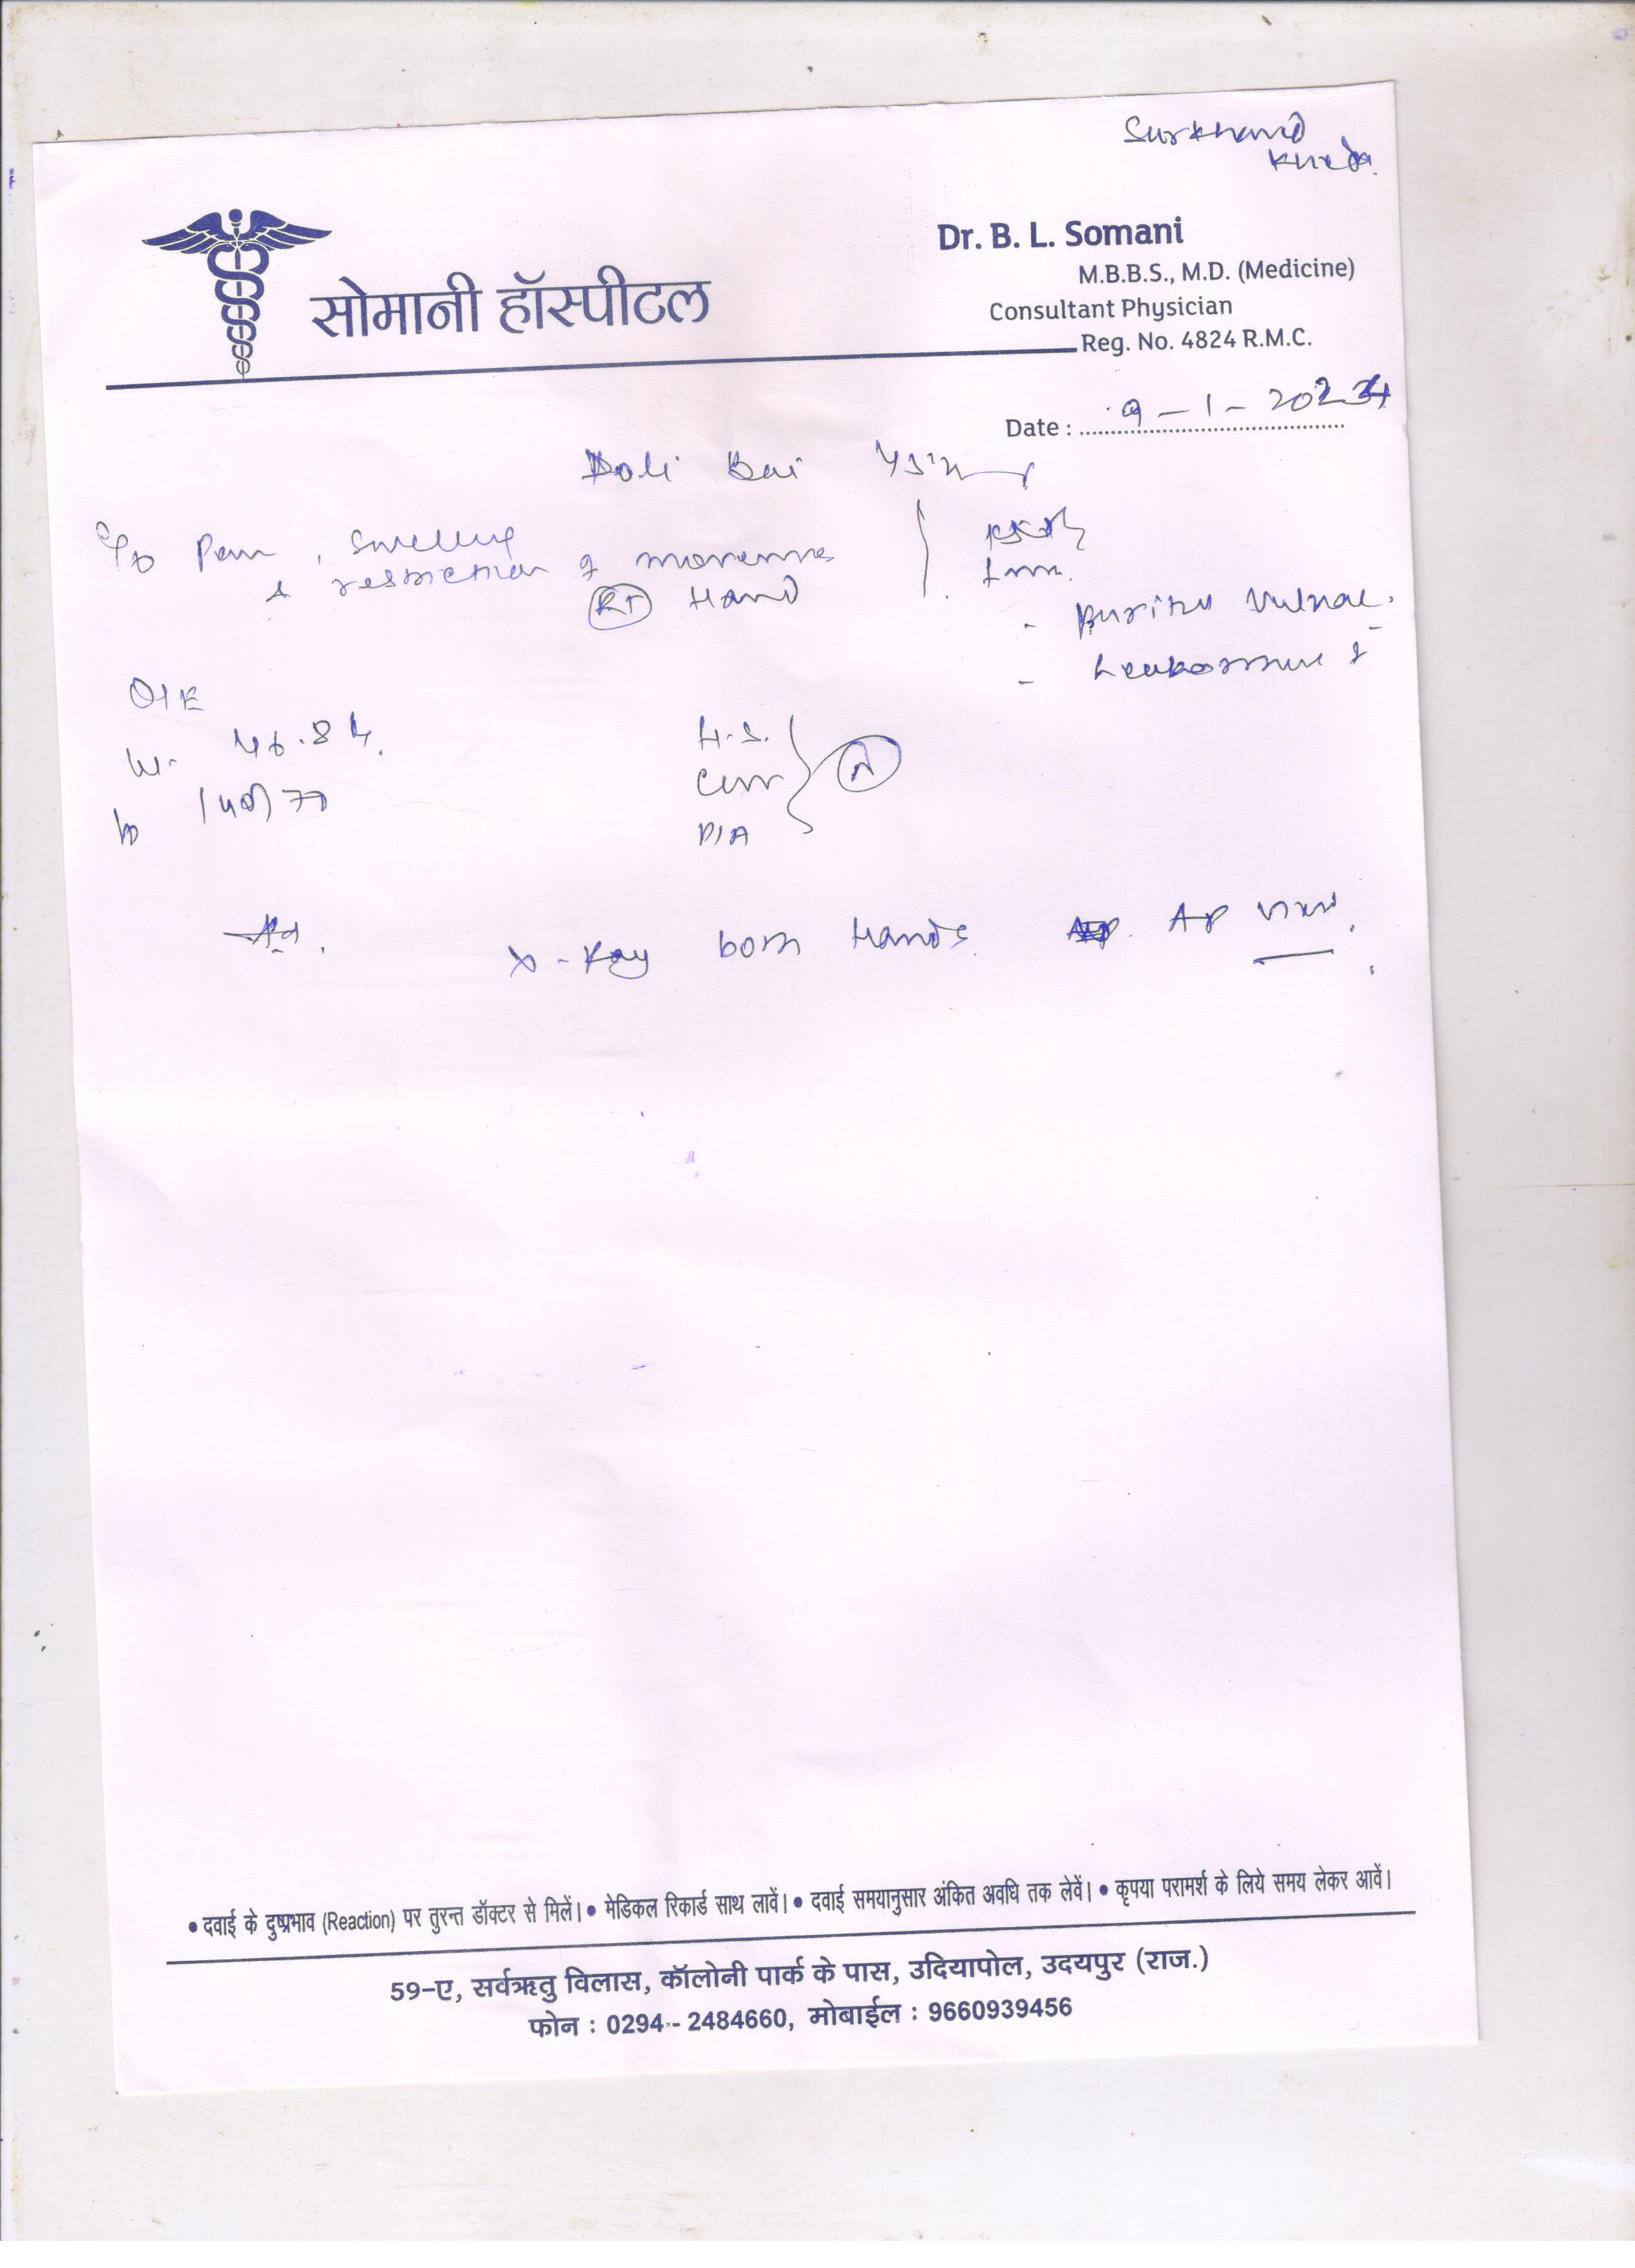 Surkhand
Kheda.
सोमानी हॉस्पीटल
Dr. B. L. Somani
M.B.B.S., M.D. (Medicine)
Consultant Physician
Reg. No. 4824 R.M.C.
Date : 9-1-2024
Doli Bai
C/o Pain, Swelling
& restriction of movements
RT Hand
- Pruritus Vulvae.
- Leukorrhoea
O/E
Wt. 46.8 k.
140/77
H.S.
Chest
P/A
N
Adv.
X-Ray both Hands. AP view.
• दवाई के दुष्प्रभाव (Reaction) पर तुरन्त डॉक्टर से मिलें। • मेडिकल रिकार्ड साथ लावें। • दवाई समयानुसार अंकित अवधि तक लेवें। • कृपया परामर्श के लिये समय लेकर आवें।
59-ए, सर्वऋतु विलास, कॉलोनी पार्क के पास, उदियापोल, उदयपुर (राज.)
फोन : 0294-2484660, मोबाईल : 9660939456